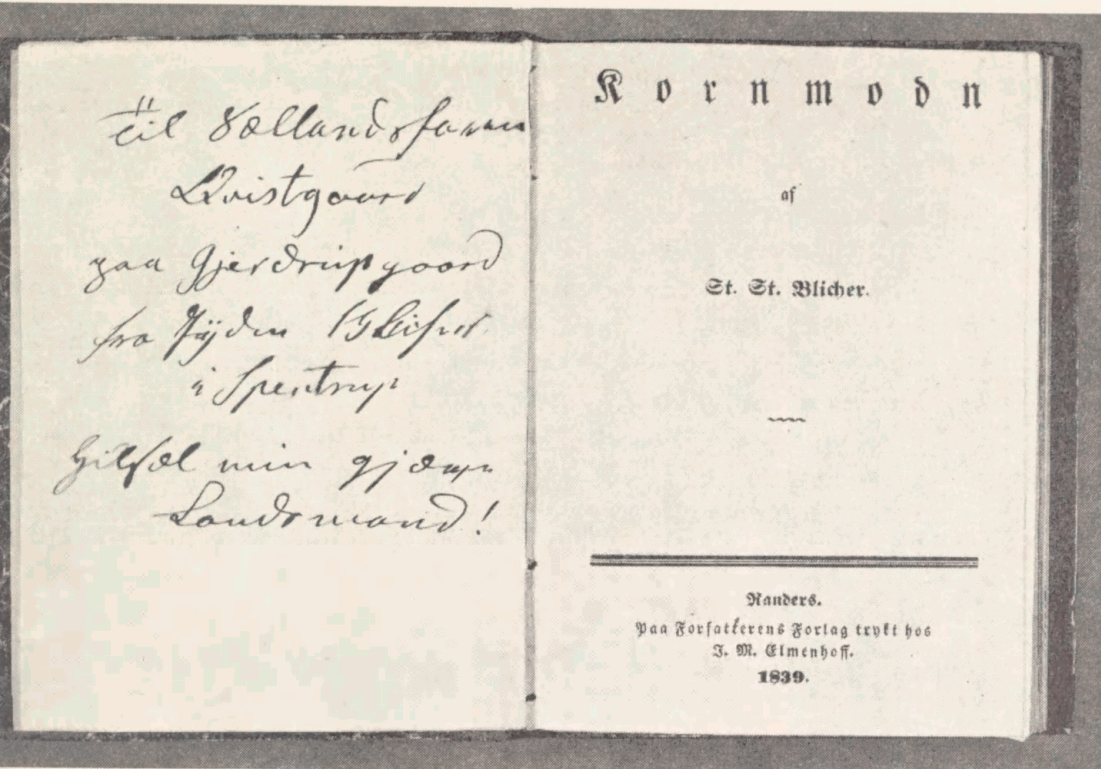 Til Sællandsfaren
Qvistgaard
paa Gjerdrupgaard
fra Jyden Blicher
i Spentrup
Hilsæl min gjæve
Landsmand!
Kornmodn
af
St. St. Blicher.
Randers.
Paa Forfatterens Forlag trykt hos
J. M. Elmenhoff.
1839.